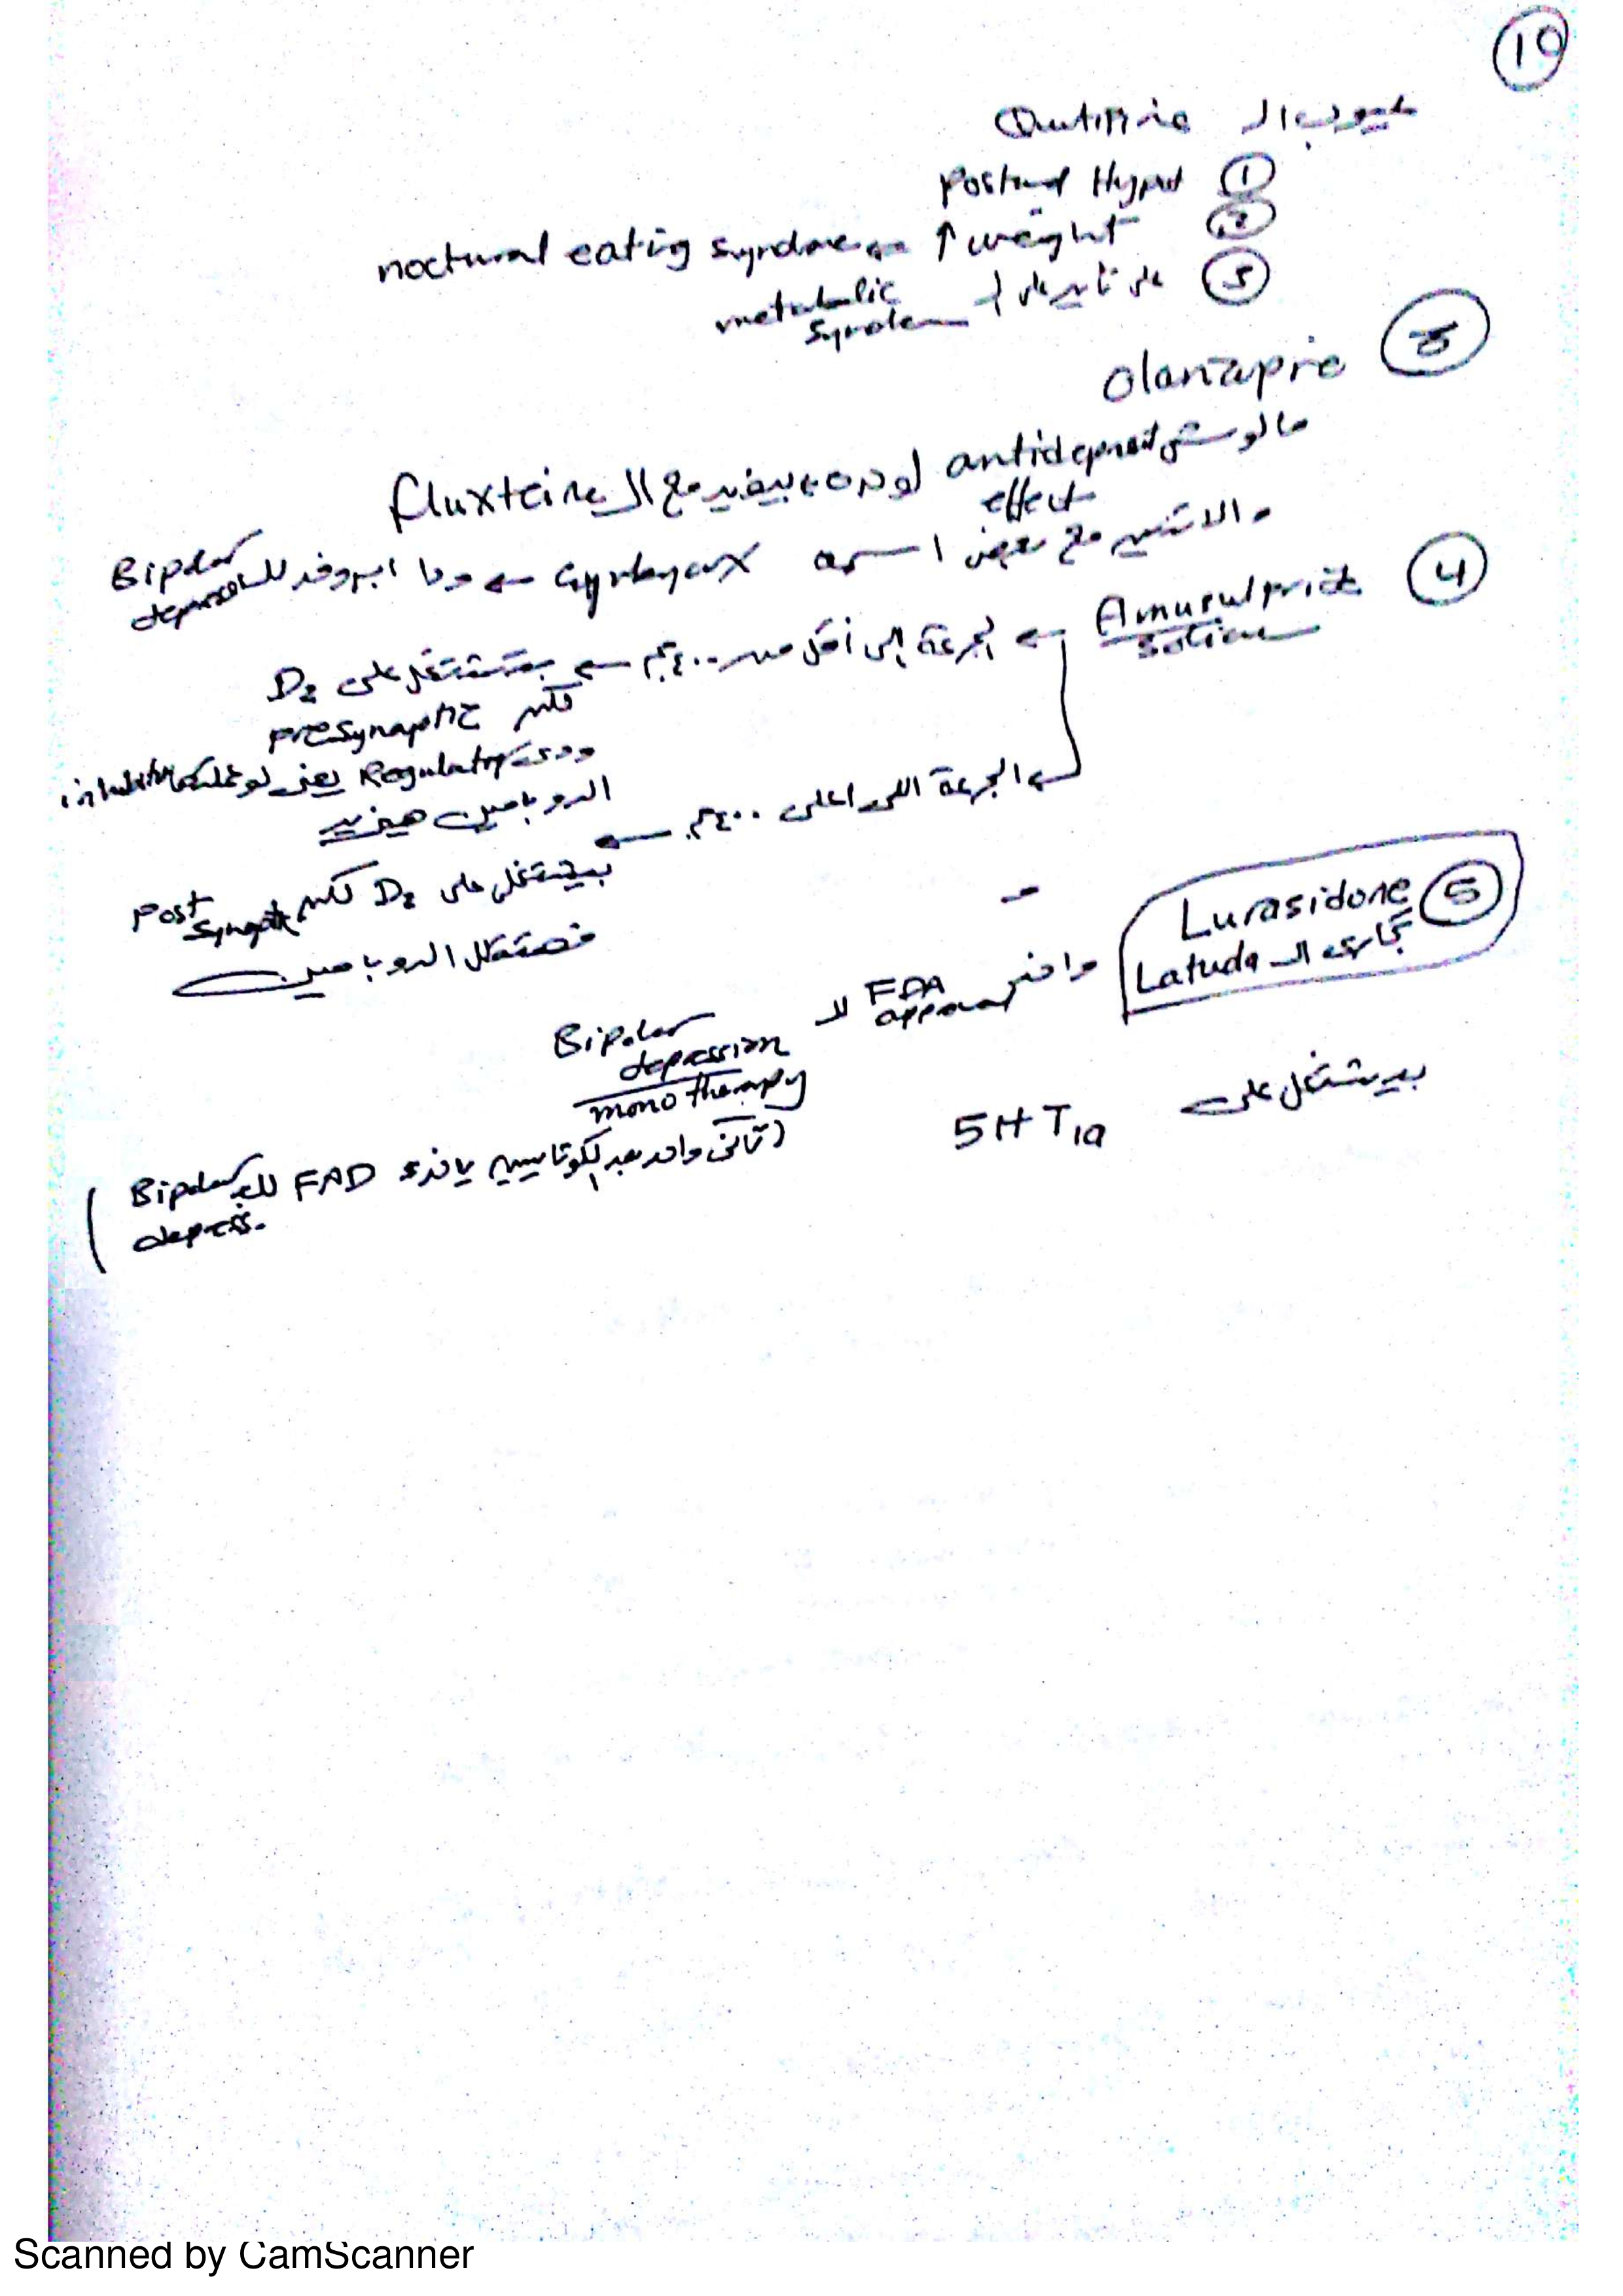 10
عيوب ال Qutipine
① Postural Hypot
② ↑ weight ← noctural eating syndrome
③ مالوش تأثير على metabolic syndrome
③ olanzapine
مالوش antideprssant effect لوحده، بيفيد مع ال fluxteine
والاتنين مع بعض اسمه symbyax ← ودا ابروفد لل Bipolar depression
④ Amusulpride solian
← الجرعة اللى أقل من ٤٠٠م ← بتشتغل على D2
لكن presynaptic
ودى Regulatory يعنى لو عملتلها inhibition
الدوبامين هيزيد
← الجرعة اللى اعلى ٤٠٠م ←
بيشتغل على D2 لكن Post synaptic
فهتقلل الدوبامين
⑤ Lurasidone
تجارى ال Latuda
واخد FDA approval لل Bipolar depression
mono therapy
بيشتغل على 5HT1a
(تانى واحد بعد الكوتابين ياخد FAD لل Bipolar depress.)
Scanned by CamScanner